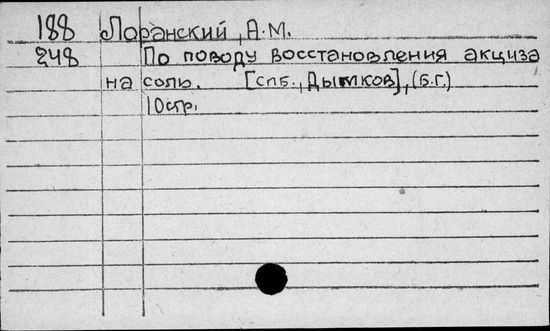 188 Лоранский, А.М.
248 По поводу восстановления акциза
на соль. [СПб., Дымков], (б.г.)
10стр.